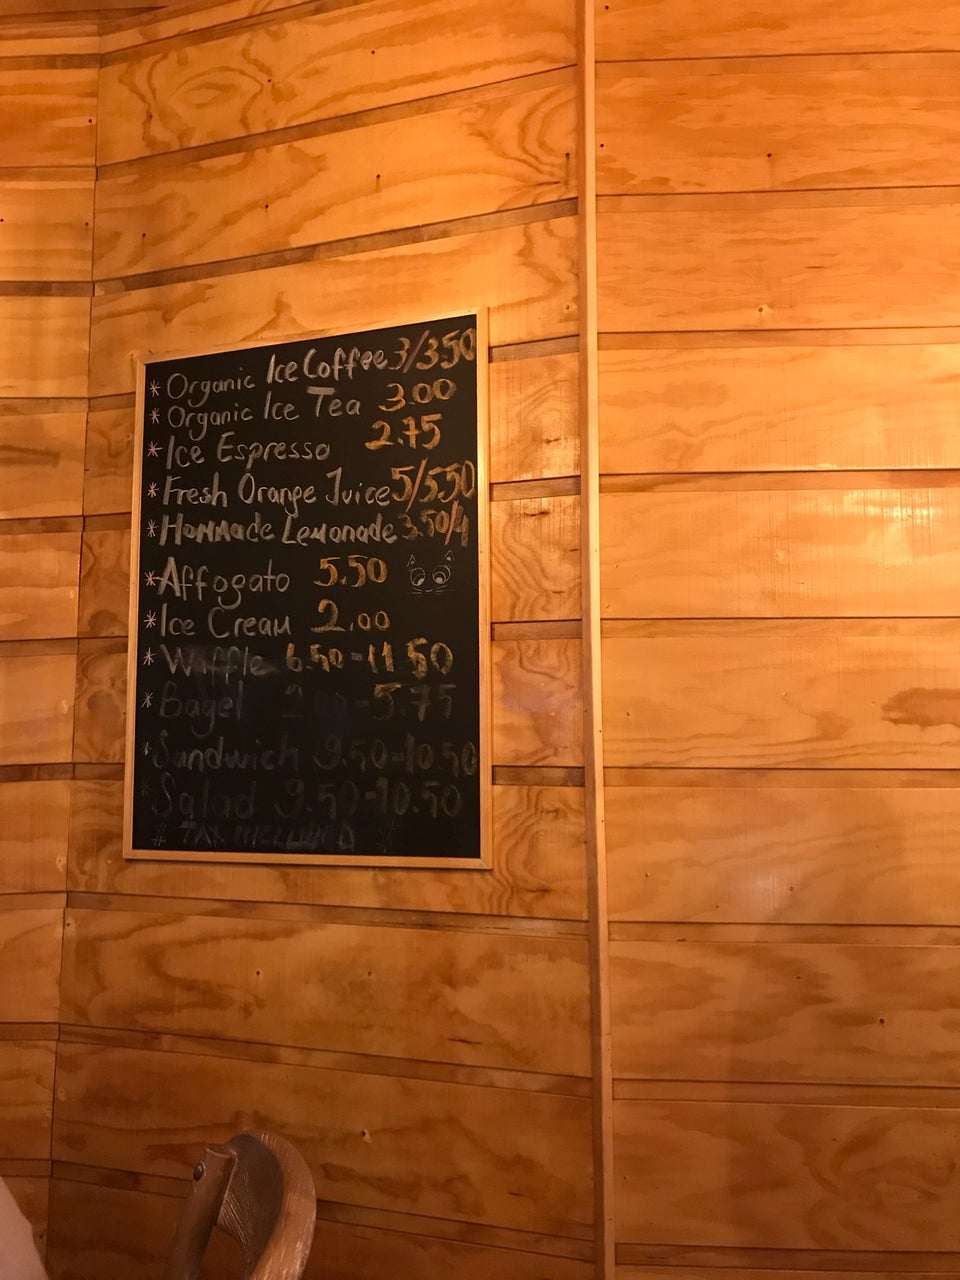 * Organic Ice Coffee 3/3.50
* Organic Ice Tea 3.00
* Ice Espresso 2.75
* Fresh Orange Juice 5/5.50
* Hommade Lemonade 3.50/4
* Affogato 5.50
* Ice Cream 2.00
* Waffle 6.50-11.50
* Bagel 2.00-5.75
* Sandwich 9.50-10.50
* Salad 9.50-10.50
# TAX INCLUDED #